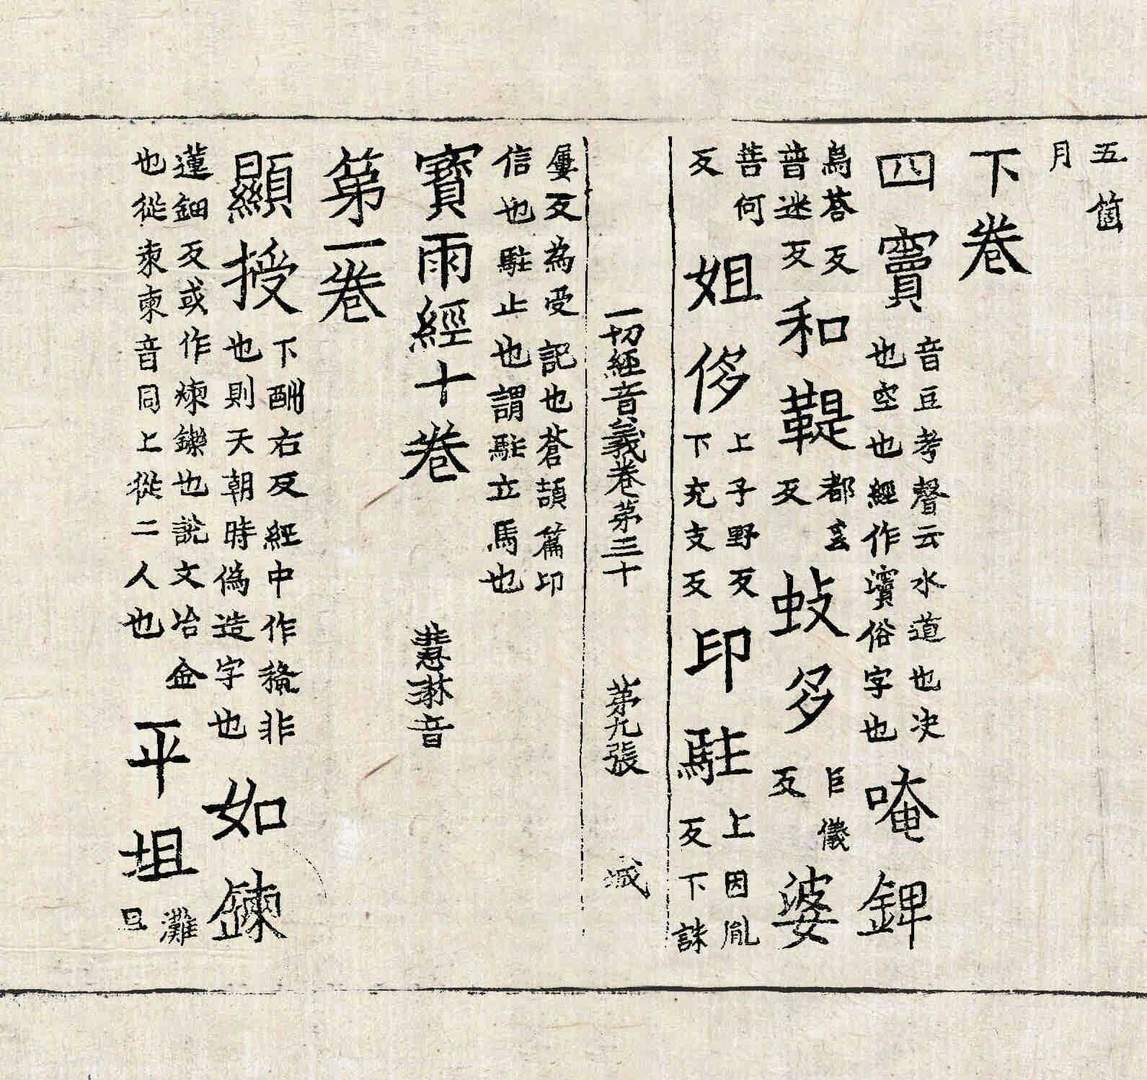 五箇
月
下卷
四竇音豆考聲云水道也决
也空也經作瀆俗字也唵鉀
烏荅反
普迷反和鞮都奚反蚑多巨儀反婆
菩何
反姐侈上子野反
下充支反印駐上因胤
反下誅
一切經音義卷第三十 第九張 城
屢反為受記也蒼頡篇印
信也駐止也謂駐立馬也
寶雨經十卷 慧琳音
第一卷
顯授下酬右反經中作𥡝非
也則天朝時偽造字也如鍊
蓮鈿反或作煉鑠也說文冶金
也從柬柬音同上從二人也平坦灘